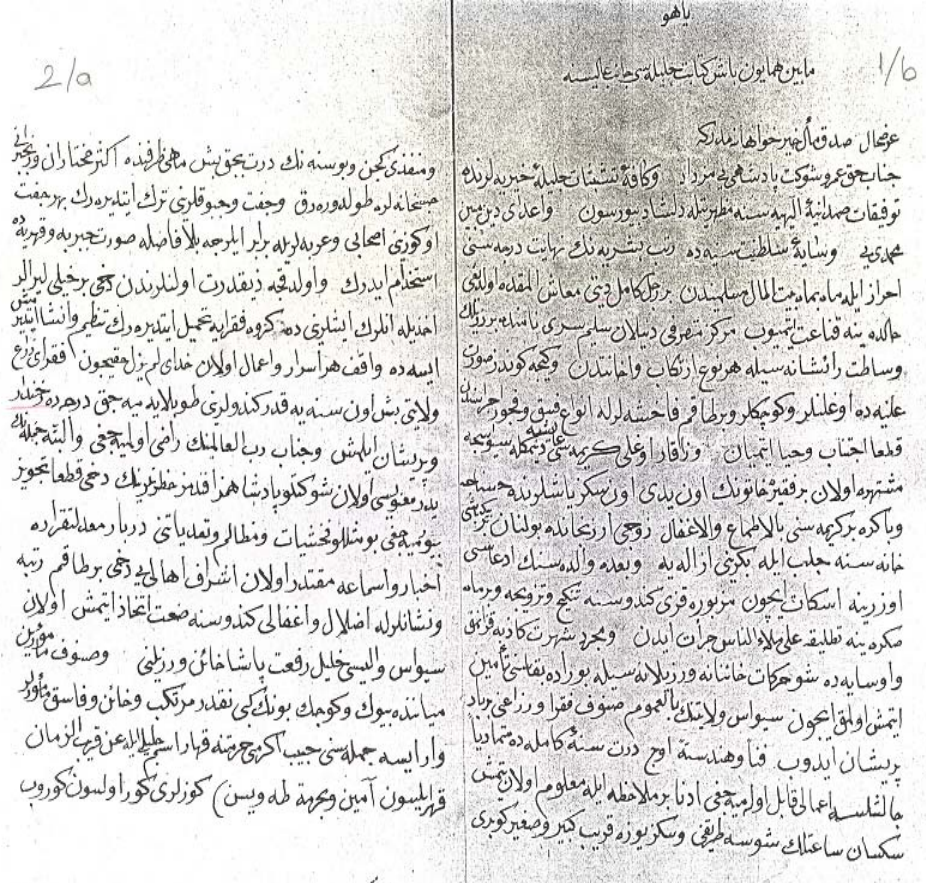 یاهو
1/b
مابین همایون باش کتابت جلیله‌سی جانب عالیسنه
عرضحال صدقمآل خیرخواهانه‌مدرکه
جناب حق عمر و شوکت پادشاهی‌یی مزداد و کافهٔ تشبثات جلیلهٔ خیریه لرنده
توفیقات صمدانیهٔ الهیه سنه مظهریتله دلشاد بیورسون واعدای دین مبین
محمدی‌یی وسایهٔ سلطنت سنیه ده رتب بشریه نك نهایت درجه سنی
احراز ایله ماه بماه بیت المال مسلمیندن بر رجل کامل دیتی معاش المقده اولدیغی
حالده ینه قناعت ایتمیوب مرکز متصرفی دسلان سلیم سری پاشا
وساطت رانشانه سیله هر نوع ارتکاب واخانتدن وکیجه کوندز صورت
علنیه ده اوغلانلر وکوچکلر وبرطاقم فاحشه لرله انواع فسق وفجور
قطعا اجتناب وحیا ایتمیان وزاقار اوغلی کریمه سی عایشه دیمکله
مشتهره اولان بر فقیر خاتونك اون یدی اون سکز یاشلرنده
وباکره بر کریمه سنی بالاطماع والاغفال زوجی ارزنجانده بولنان
خانه سنه جلب ایله بکرینی ازاله یه وبعده والده سنك ادعاسی
اوزرینه اسکات ایچون مزبوره قزی کندوسنه تنکیح وتزویجه وبرماه
صکره ینه تطلیقه علی ملاء الناس جرات ایدن ومجرد شهرت کاذبه
واوسایه ده شو حرکات خائنانه ورذیلانه سیله بوراده بقاسنی تأمین
ایتمش اولمق ایچون سیواس ولایتنك بالعموم صنوف فقرا وزراعی
پریشان ایدوب فنا وهندسة اوچ درت سنهٔ کامله ده متمادیا
چالشلسه اعمالی قابل اوله میه جغی ادنا بر ملاحظه ایله معلوم اولان یتمش
سکسان ساعتلك شوسه طریقی وسکز یوزه قریب کبیر وصغیر کوپری
2/a
ومنفذی کچن وبو سنه نك درت بحق بش ماهی ظرفنده اکثر مختاران
حبسخانه لره طولدوره رق وجفت وجبوقلرنی ترك ایتدیره رك بهر جفت
اوکوزی اصحابی وعربه لریله برابر ایلرجه بلا فاصله صورت جبریه وقهریه ده
استخدام ایدرك واولدقجه ذیقدرت اولنلرندن دخی بر خیلی لیرالر
اخذیله انلرك ایشلرینی ده کروه فقرایه تحمیل ایتدیره رك تنظیم وانشا ایتدیرمش
ایسه ده واقف هر اسرار واعمال اولان خدای لم یزل حقیچون فقرای زراع
ولایتی بش اون سنه یه قدر کندولرینی طوپلایه میه جق درجه ده
وپریشان ایلمش وجناب رب العالمینك راضی اولمیه جغی والبته جمله نك
پدر معنویسی اولان شوکتلو پادشاهمز افندمز حضرتلرینك دخی قطعا تجویز
بیورمیه جغی بو مثللو مخنثیات ومظالم وتعدیاتنی دربار معدلتقراره
اخبار واسماعه مقتدر اولان اشراف اهالی‌یی دخی برطاقم رتبه
ونشانلرله اضلال واغفالی کندوسنه صنعت اتخاذ ایتمش اولان
سیواس والیسی خلیل رفعت پاشا خائن ورذیلنی وصنوف مأمورین
میاننده بیوك وکوچك بونك کبی نقدر مرتکب وخائن وفاسق مأمورلر
وار ایسه جمله سنی حبیب اکرمی حرمتنه قهار اسم جلیلیله عن قریب الزمان
قهر ایلسون آمین وبحرمة طه ویس) کوزلری کور اولسون کوروب